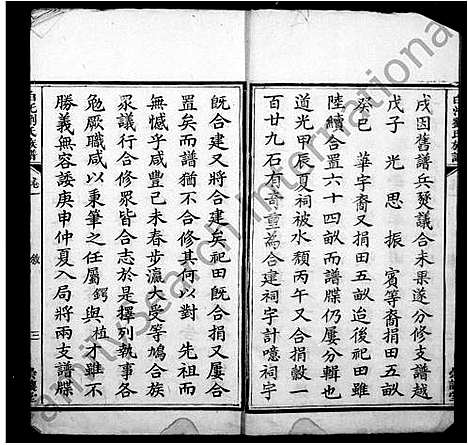 戌因舊譜兵燹議合未果遂分修支譜越
戊子光思振賓等裔捐田五畝
癸巳華字裔又捐田五畝迨後祀田雖
陸續合置六十四畝而譜牒仍屢分輯也
道光甲辰夏祠被水頹丙午又合捐穀一
百廿九石有奇重為合建祠宇計噫祠字
既合建又將合建矣祀田既合捐又屢合
置矣而譜猶不合修其何以對先祖而
無憾乎咸豐己未春步瀛大受等鳩合族
眾議行合修眾皆合志於是擇列執事各
勉厥職咸以秉筆之任屬鍔與植才雖不
勝義無容諉庚申仲夏入局將兩支譜牒
劉氏族譜
卷一
敘
二
familysearch international